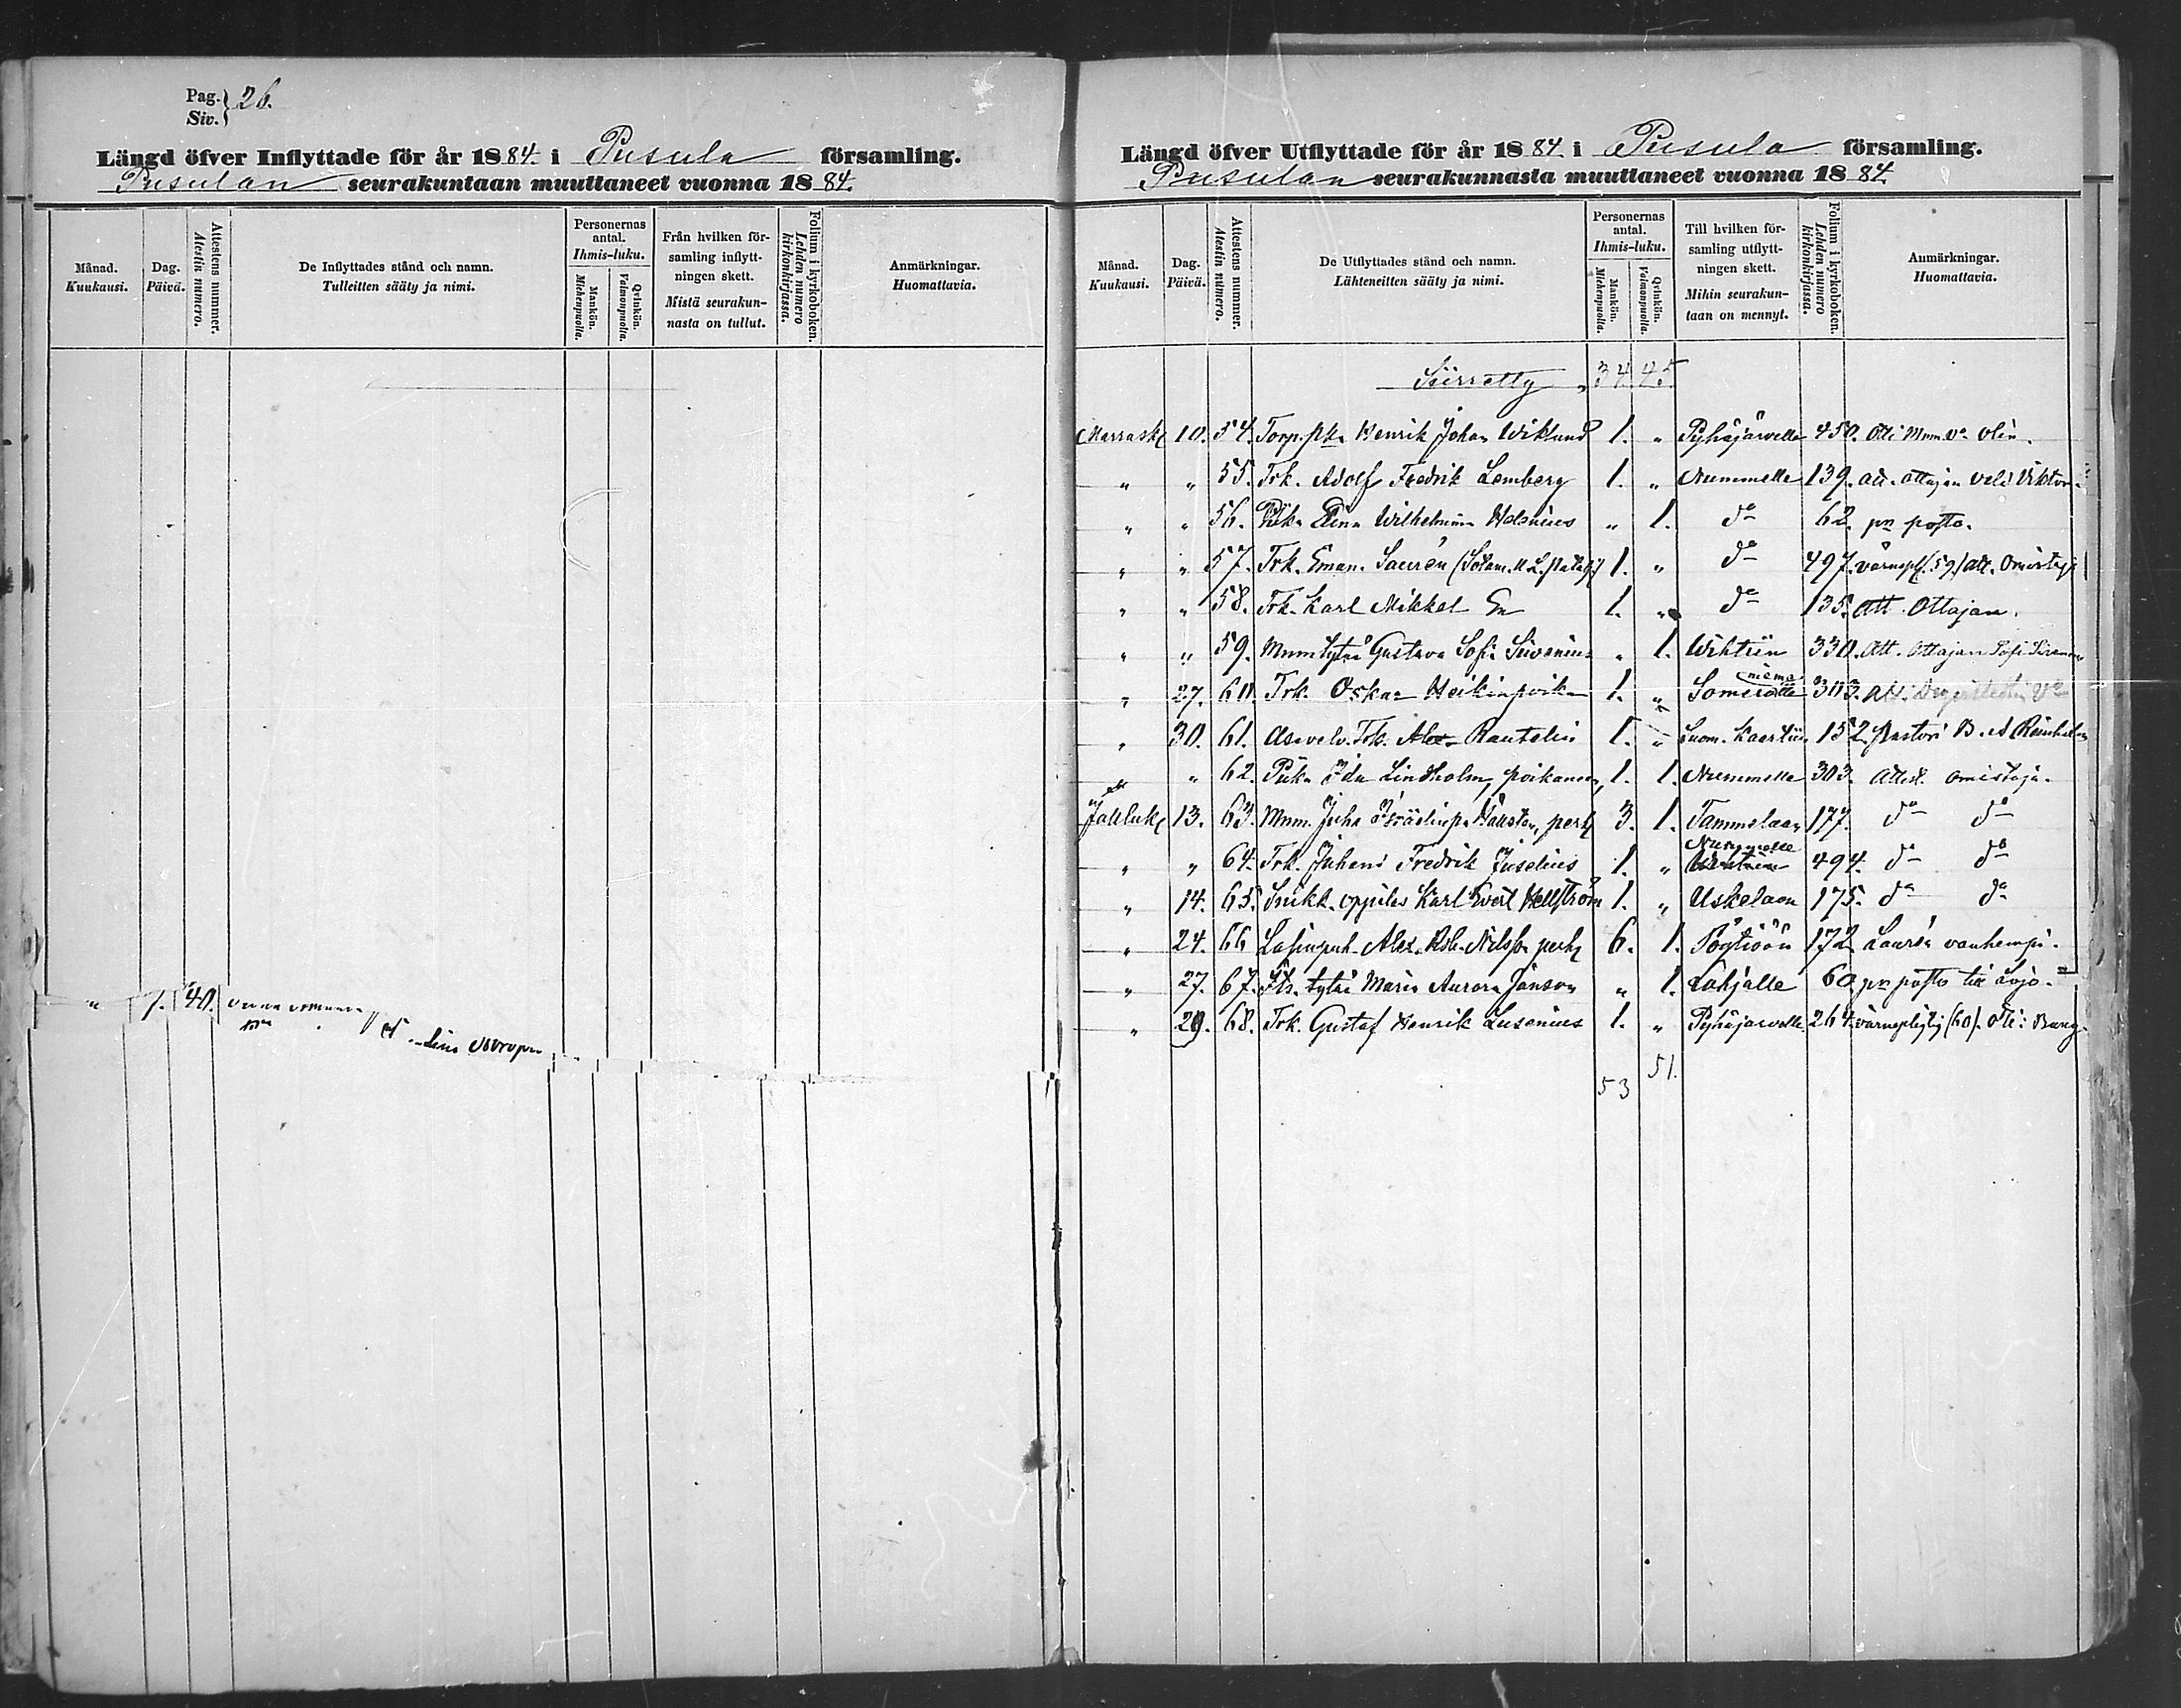 Pag. Siv. } 26.
Längd öfver Inflyttade för år 1884. i Pusula församling.
Pusulan seurakuntaan muuttaneet vuonna 1884.
Månad. Kuukausi.
Dag. Päivä.
Attestens nummer. Atestin numero.
De Inflyttades stånd och namn. Tulleitten sääty ja nimi.
Personernas antal. Ihmis-luku.
Mankön. Miehenpuolia.
Qvinkön. Vaimonpuolia.
Från hvilken församling inflyttningen skett. Mistä seurakunnasta on tullut.
Folium i kyrkoboken. Lehden numero kirkonkirjassa.
Anmärkningar. Huomattavia.
" 7. 40.
Längd öfver Utflyttade för år 1884. i Pusula församling.
Pusulan seurakunnasta muuttaneet vuonna 1884.
Månad. Kuukausi.
Dag. Päivä.
Attestens nummer. Atestin numero.
De Utflyttades stånd och namn. Lähteneitten sääty ja nimi.
Personernas antal. Ihmis-luku.
Mankön. Miehenpuolia.
Qvinkön. Vaimonpuolia.
Till hvilken församling utflyttningen skett. Mihin seurakuntaan on mennyt.
Folium i kyrkoboken. Lehden numero kirkonkirjassa.
Anmärkningar. Huomattavia.
Siirretty 34 45
Marrask 10. 54. Torp. pka Henrik Johan Wiklund 1. " Pyhäjärvelle 450. Otti Mnm. Va Olin.
" " 55. Trk. Adolf Fredrik Lemberg 1. " Nummelle 139. att. ottajan veli Viktor
" " 56. Piika Elina Wilhelmina Helenius " 1. do 62. pr posto.
" " 57. Trk. Eman. Saurén 1. " do 497. värnepl. (59) att.
" " 58. Trk. Karl Mikkel En 1. " do 135. Att. Ottajan.
" " 59. Mnm tytär Gustava Sofia " 1. Wihtiin 330. Att. Ottajan Sofi
" 27. 60. Trk. Oskar Heikinpoika 1. " Somerolle niemelle 303.
" 30. 61. Trk. Alex. Rautelin 1. " Suom. Kaartiin 152. Pastori
" " 62. Piika Ida Lindholm, poikansa, 1. 1. Nummelle 303. Attest. omistaja.
Jouluk 13. 63. Mnm. Juha perh 3. 1. Tammelaan 177. do do
" " 64. Trk. Juhani Fredrik Juselius 1. " Wihtiin Nummelle 494. do do
" 14. 65. oppilas Karl Evert Hellström 1. " Uskelaan 175. do do
" 24. 66 Alex. Rob. Nilsson perh 6. 1. Pöytiöön 172. Laurén vanhempi.
" 27. 67. Its. tytär Maria Aurora Janson " 1. Lohjalle 60. pr posto till Lojo.
" 29. 68. Trk. Gustaf Henrik Lusenius 1. " Pyhäjärvelle 264. värnepligtig (60). Otti
53 51.